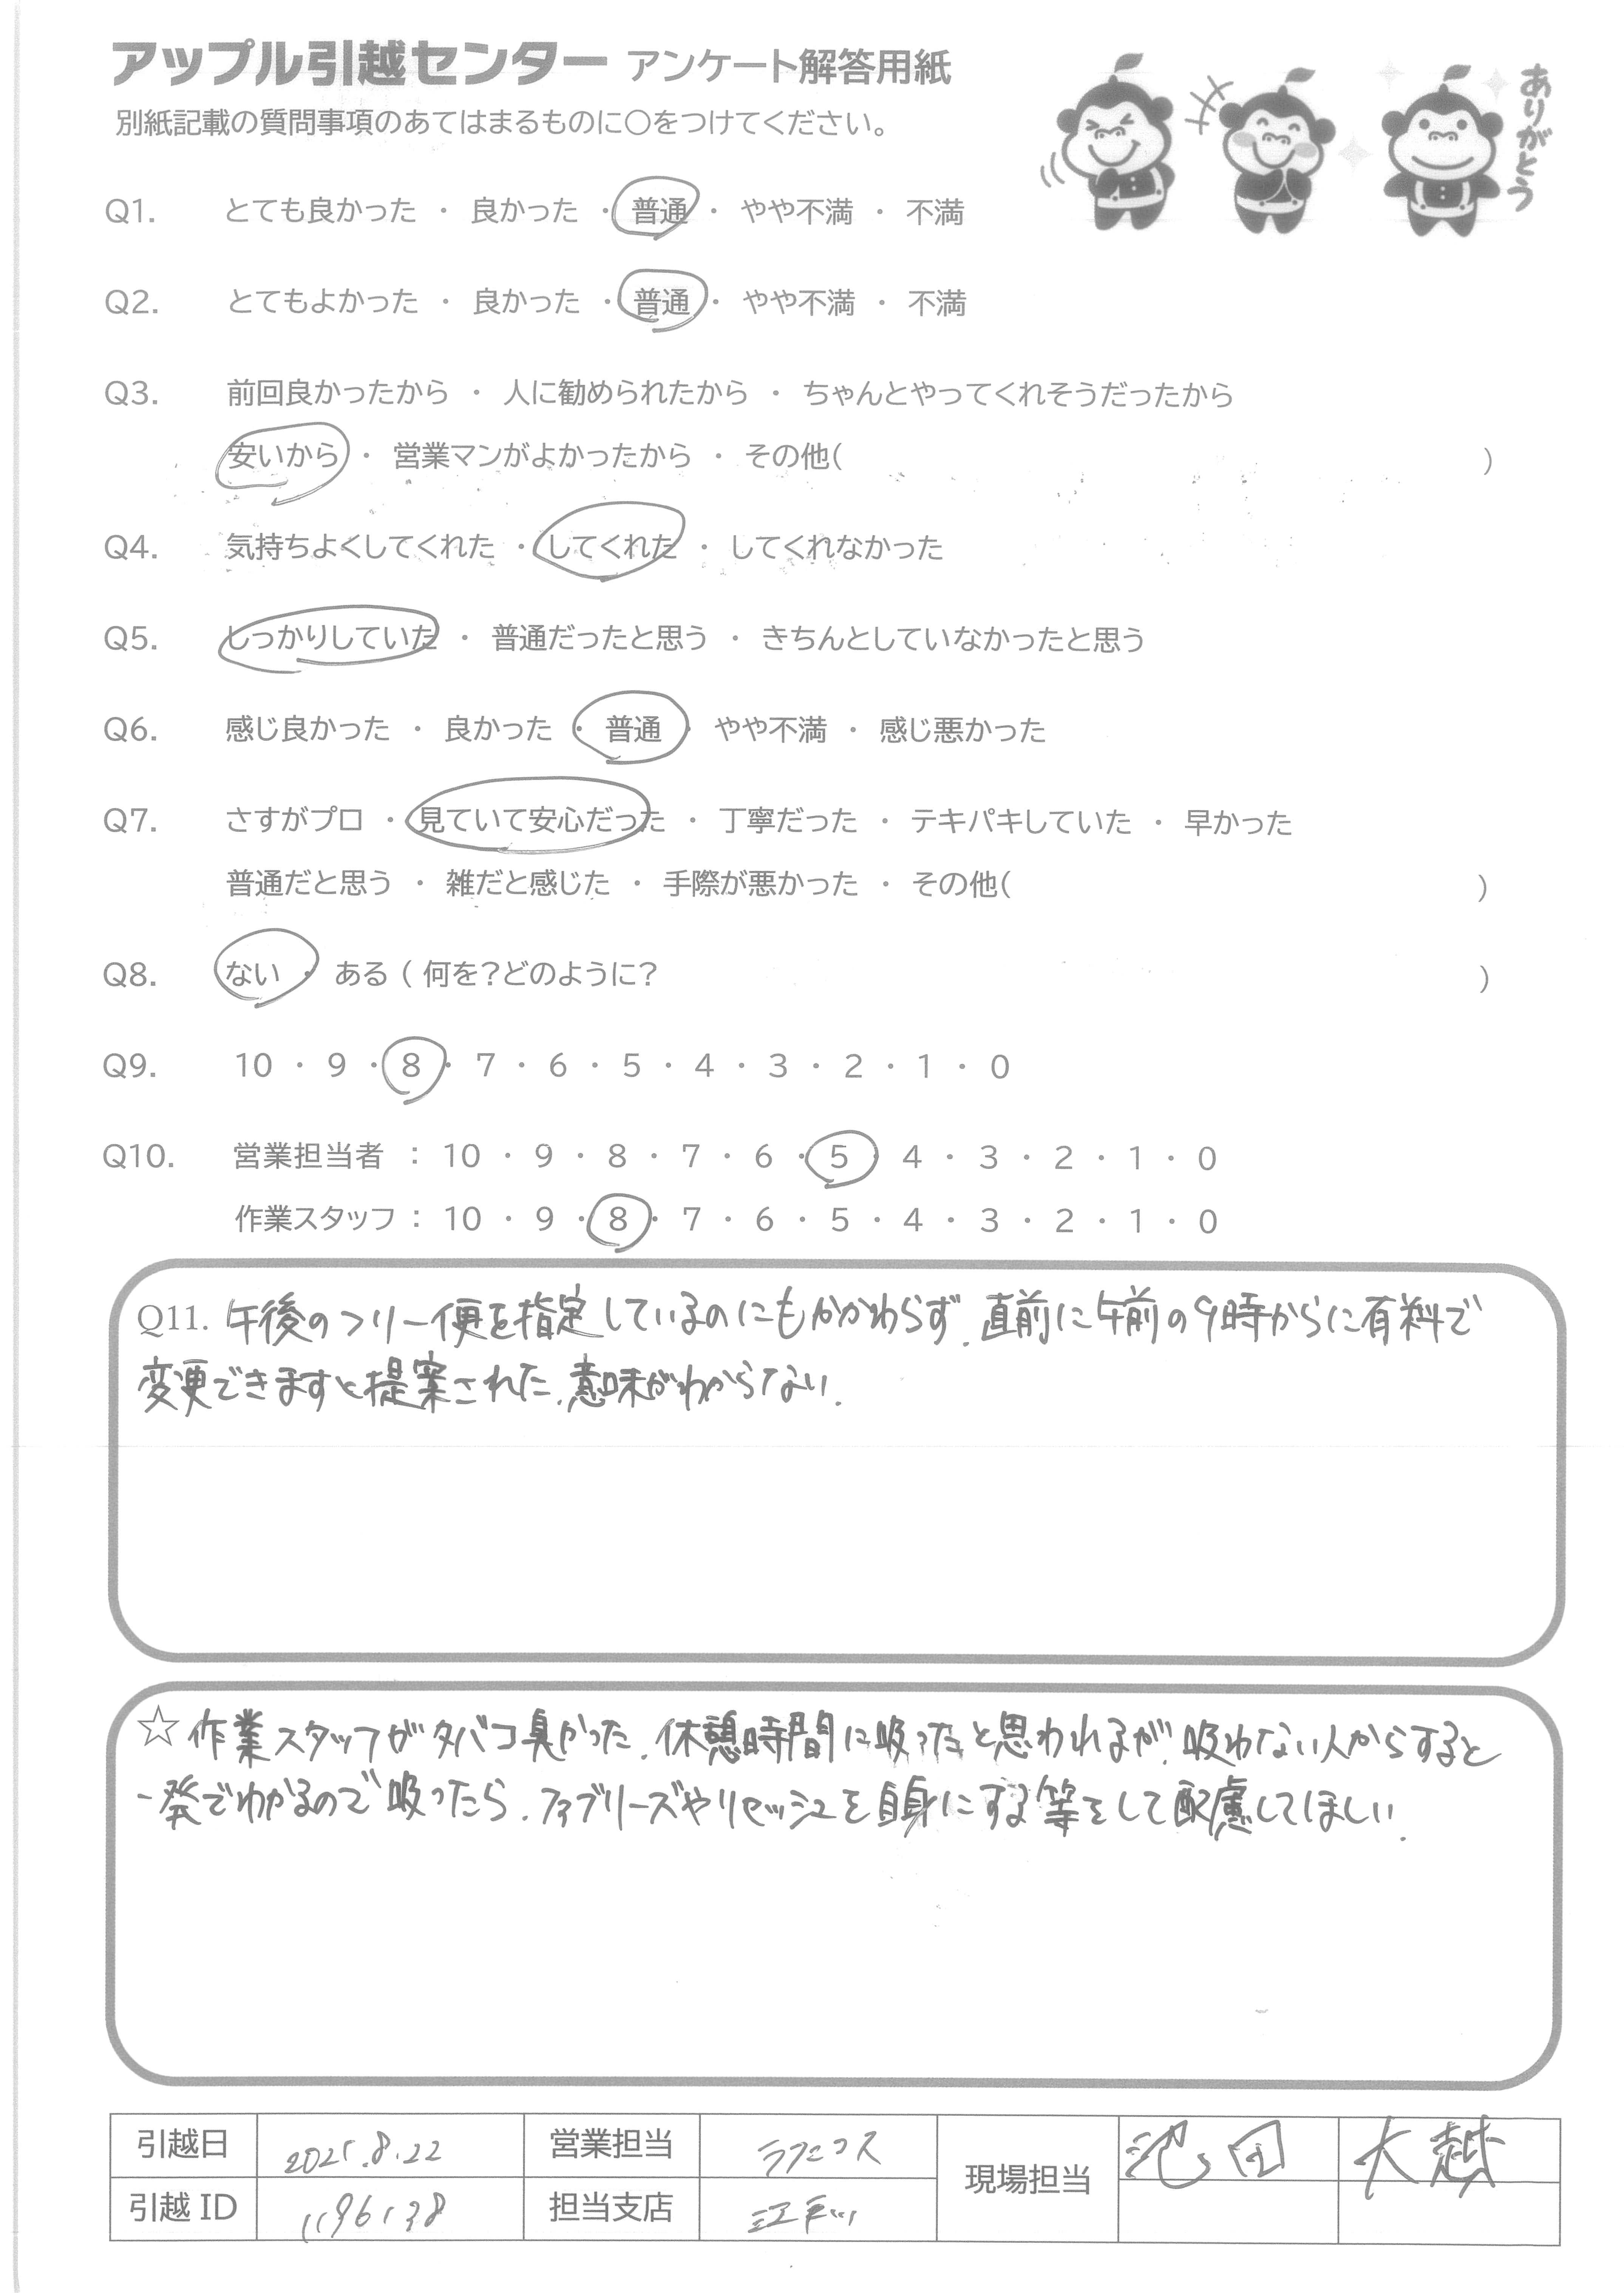 アップル引越センター アンケート解答用紙
別紙記載の質問事項のあてはまるものに○をつけてください。
ありがとう
Q1. とても良かった ・ 良かった ・ 普通 ・ やや不満 ・ 不満
Q2. とてもよかった ・ 良かった ・ 普通 ・ やや不満 ・ 不満
Q3. 前回良かったから ・ 人に勧められたから ・ ちゃんとやってくれそうだったから
安いから ・ 営業マンがよかったから ・ その他( )
Q4. 気持ちよくしてくれた ・ してくれた ・ してくれなかった
Q5. しっかりしていた ・ 普通だったと思う ・ きちんとしていなかったと思う
Q6. 感じ良かった ・ 良かった ・ 普通 ・ やや不満 ・ 感じ悪かった
Q7. さすがプロ ・ 見ていて安心だった ・ 丁寧だった ・ テキパキしていた ・ 早かった
普通だと思う ・ 雑だと感じた ・ 手際が悪かった ・ その他( )
Q8. ない ・ ある ( 何を?どのように? )
Q9. 10 ・ 9 ・ 8 ・ 7 ・ 6 ・ 5 ・ 4 ・ 3 ・ 2 ・ 1 ・ 0
Q10. 営業担当者 : 10 ・ 9 ・ 8 ・ 7 ・ 6 ・ 5 ・ 4 ・ 3 ・ 2 ・ 1 ・ 0
作業スタッフ : 10 ・ 9 ・ 8 ・ 7 ・ 6 ・ 5 ・ 4 ・ 3 ・ 2 ・ 1 ・ 0
Q11. 午後のフリー便を指定しているのにもかかわらず、直前に午前の9時からに有料で
変更できますと提案された。意味がわからない。
☆ 作業スタッフがタバコ臭かった。休憩時間に吸ったと思われるが、吸わない人からすると
一発でわかるので吸ったら、ファブリーズやリセッシュを自身にする等をして配慮してほしい。
引越日 2025.8.22 営業担当 現場担当 池田 大越
引越 ID 担当支店 江戸川